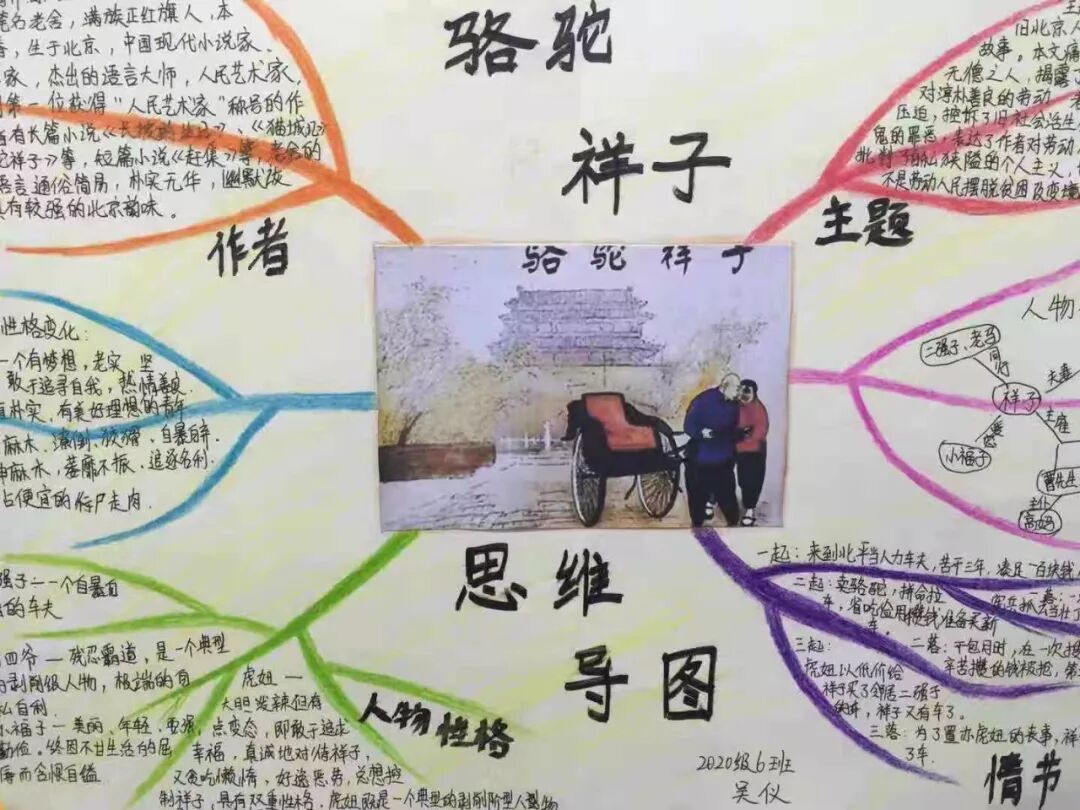 骆驼
祥子
思维
导图
骆驼祥子
作者
笔名老舍，满族正红旗人，本
，生于北京，中国现代小说家、
家，杰出的语言大师，人民艺术家，
第一位获得“人民艺术家”称号的作
有长篇小说《》、《猫城记》
祥子》等，短篇小说《赶集》等，老舍的
语言通俗简易，朴实无华，幽默诙
具有较强的北京韵味。
主题
旧北京人
故事。本文痛
之人，揭露了
对淳朴善良的劳动
压迫，控诉了旧社会活生
鬼的罪恶，表达了作者对劳动人
批判了自私狭隘的个人主义，
不是劳动人民摆脱贫困及变境
性格变化：
一个有梦想，老实、坚
敢于追寻自我，热情善良
朴实、有美好理想的青年
麻木、潦倒、狡猾、自暴自弃.
麻木，萎靡不振，追逐名利.
占便宜的行尸走肉.
人物
二强子、老马
同行
夫妻
祥子
主雇
爱恋
小福子
曹先生
主仆
高妈
强子——一个自暴自
的车夫
四爷—残忍霸道，是一个典型
剥削级人物，极端的自
私自利.
小福子—美丽、年轻、要强、
勤俭。终因不甘生活的屈
辱而含恨自缢.
虎妞—
大胆泼辣但有
点变态，即敢于追求
幸福，真诚地对待祥子，
又贪吃懒惰，好逸恶劳，总想控
制祥子，具有双重性格，虎妞既是一个典型的剥削阶型人物
人物性格
一起：来到北平当人力车夫，苦干三年，凑足一百块钱
一落：
二起：卖骆驼，拼命拉
车，省吃俭用攒钱准备买新
车。
二落：干包月时，在一次搜
辛苦攒的钱被抢，第
三起：
虎妞以低价给
祥子买了邻居二强子
的车，祥子又有车了。
三落：为了置办虎妞的丧事，祥
了车.
情节
2020级6班
吴仪